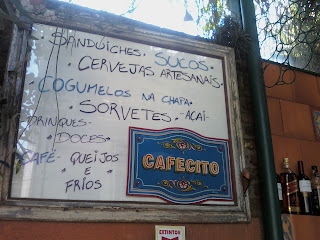 SANDUICHES - SUCOS -
- CERVEJAS ARTESANAIS -
- COGUMELOS NA CHAPA -
- SORVETES - AÇAÍ -
DRINQUES -
- DOCES -
CAFÉ - QUEIJOS
E
FRIOS
CAFECITO
EXTINTOR